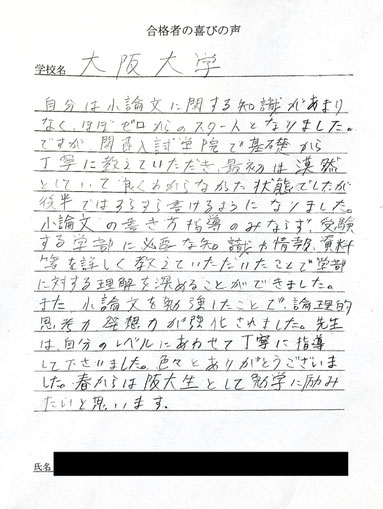 合格者の喜びの声
学校名 大阪大学
自分は小論文に関する知識があまり
なく、ほぼゼロからのスタートとなりました。
ですが関西入試学院で基礎から
丁寧に教えていただき、最初は漠然
としていて良くわからなかった状態でしたが
後半ではすらすら書けるように なりました。
小論文の書き方指導のみならず、受験
する学部に必要な知識や情報、資料
等を詳しく教えていただいたことで学部
に対する理解を深めることができました。
また、小論文を勉強したことで、論理的
思考力、発想力が強化されました。先生
は、自分のレベルにあわせて丁寧に指導
して下さいました。色々とありがとうございま
した。春からは阪大生として勉学に励み
たいと思います。
氏名